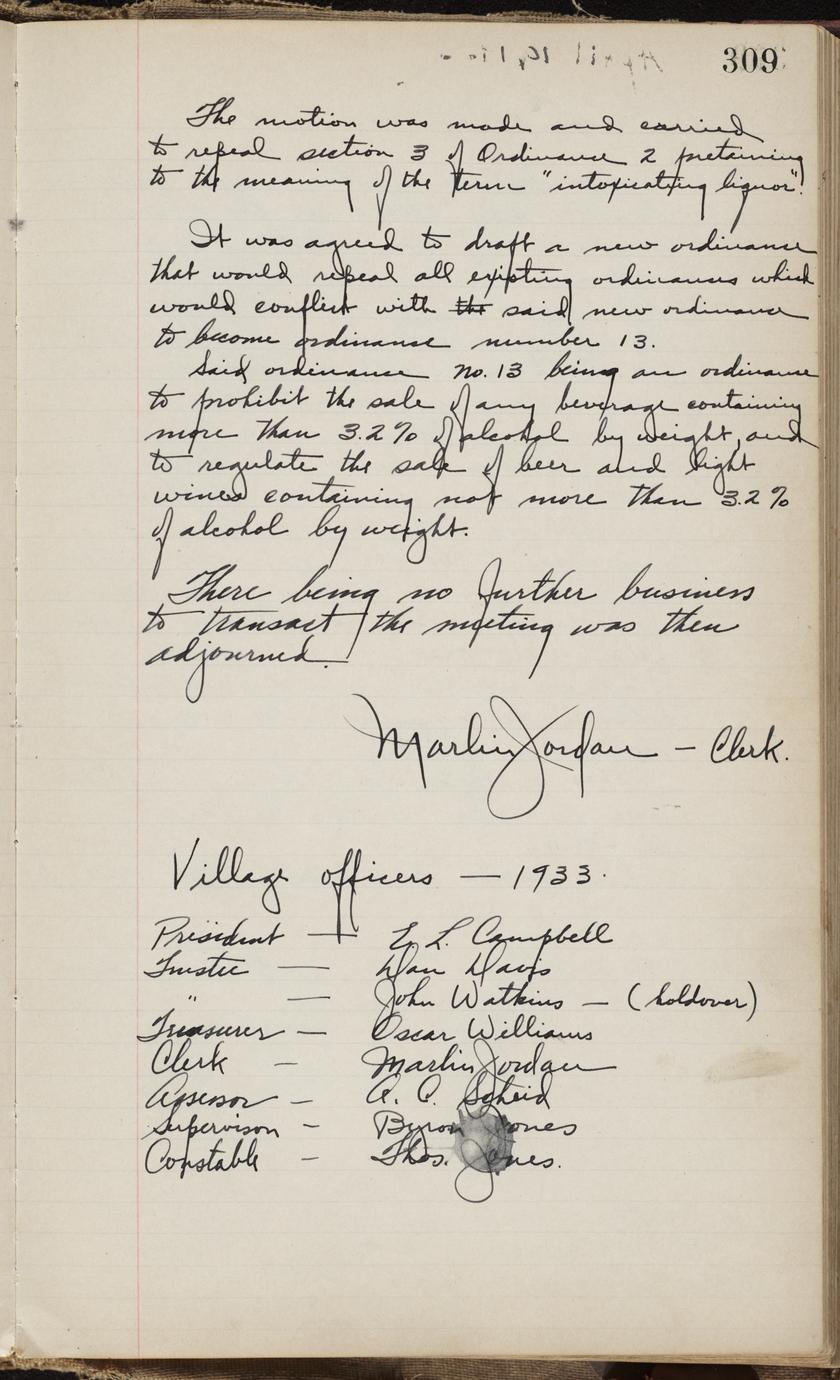 309
The motion was made and carried
to repeal section 3 of Ordinance 2 pretaining
to the meaning of the term "intoxicating liquor".
It was agreed to draft a new ordinance
that would repeal all existing ordinances which
would conflict with the said new ordinance
to become ordinance number 13.
Said ordinance no. 13 being an ordinance
to prohibit the sale of any beverage containing
more than 3.2% of alcohol by weight, and
to regulate the sale of beer and light
wines containing not more than 3.2%
of alcohol by weight.
There being no further business
to transact the meeting was then
adjourned.
Marlin Jordan — Clerk.
Village officers — 1933.
President — E. L. Campbell
Trustee — Dan Davis
" — John Watkins — (holdover)
Treasurer — Oscar Williams
Clerk — Marlin Jordan
Assessor — A. C. Scheid
Supervison — Byron Jones
Constable — Thos. Jones.